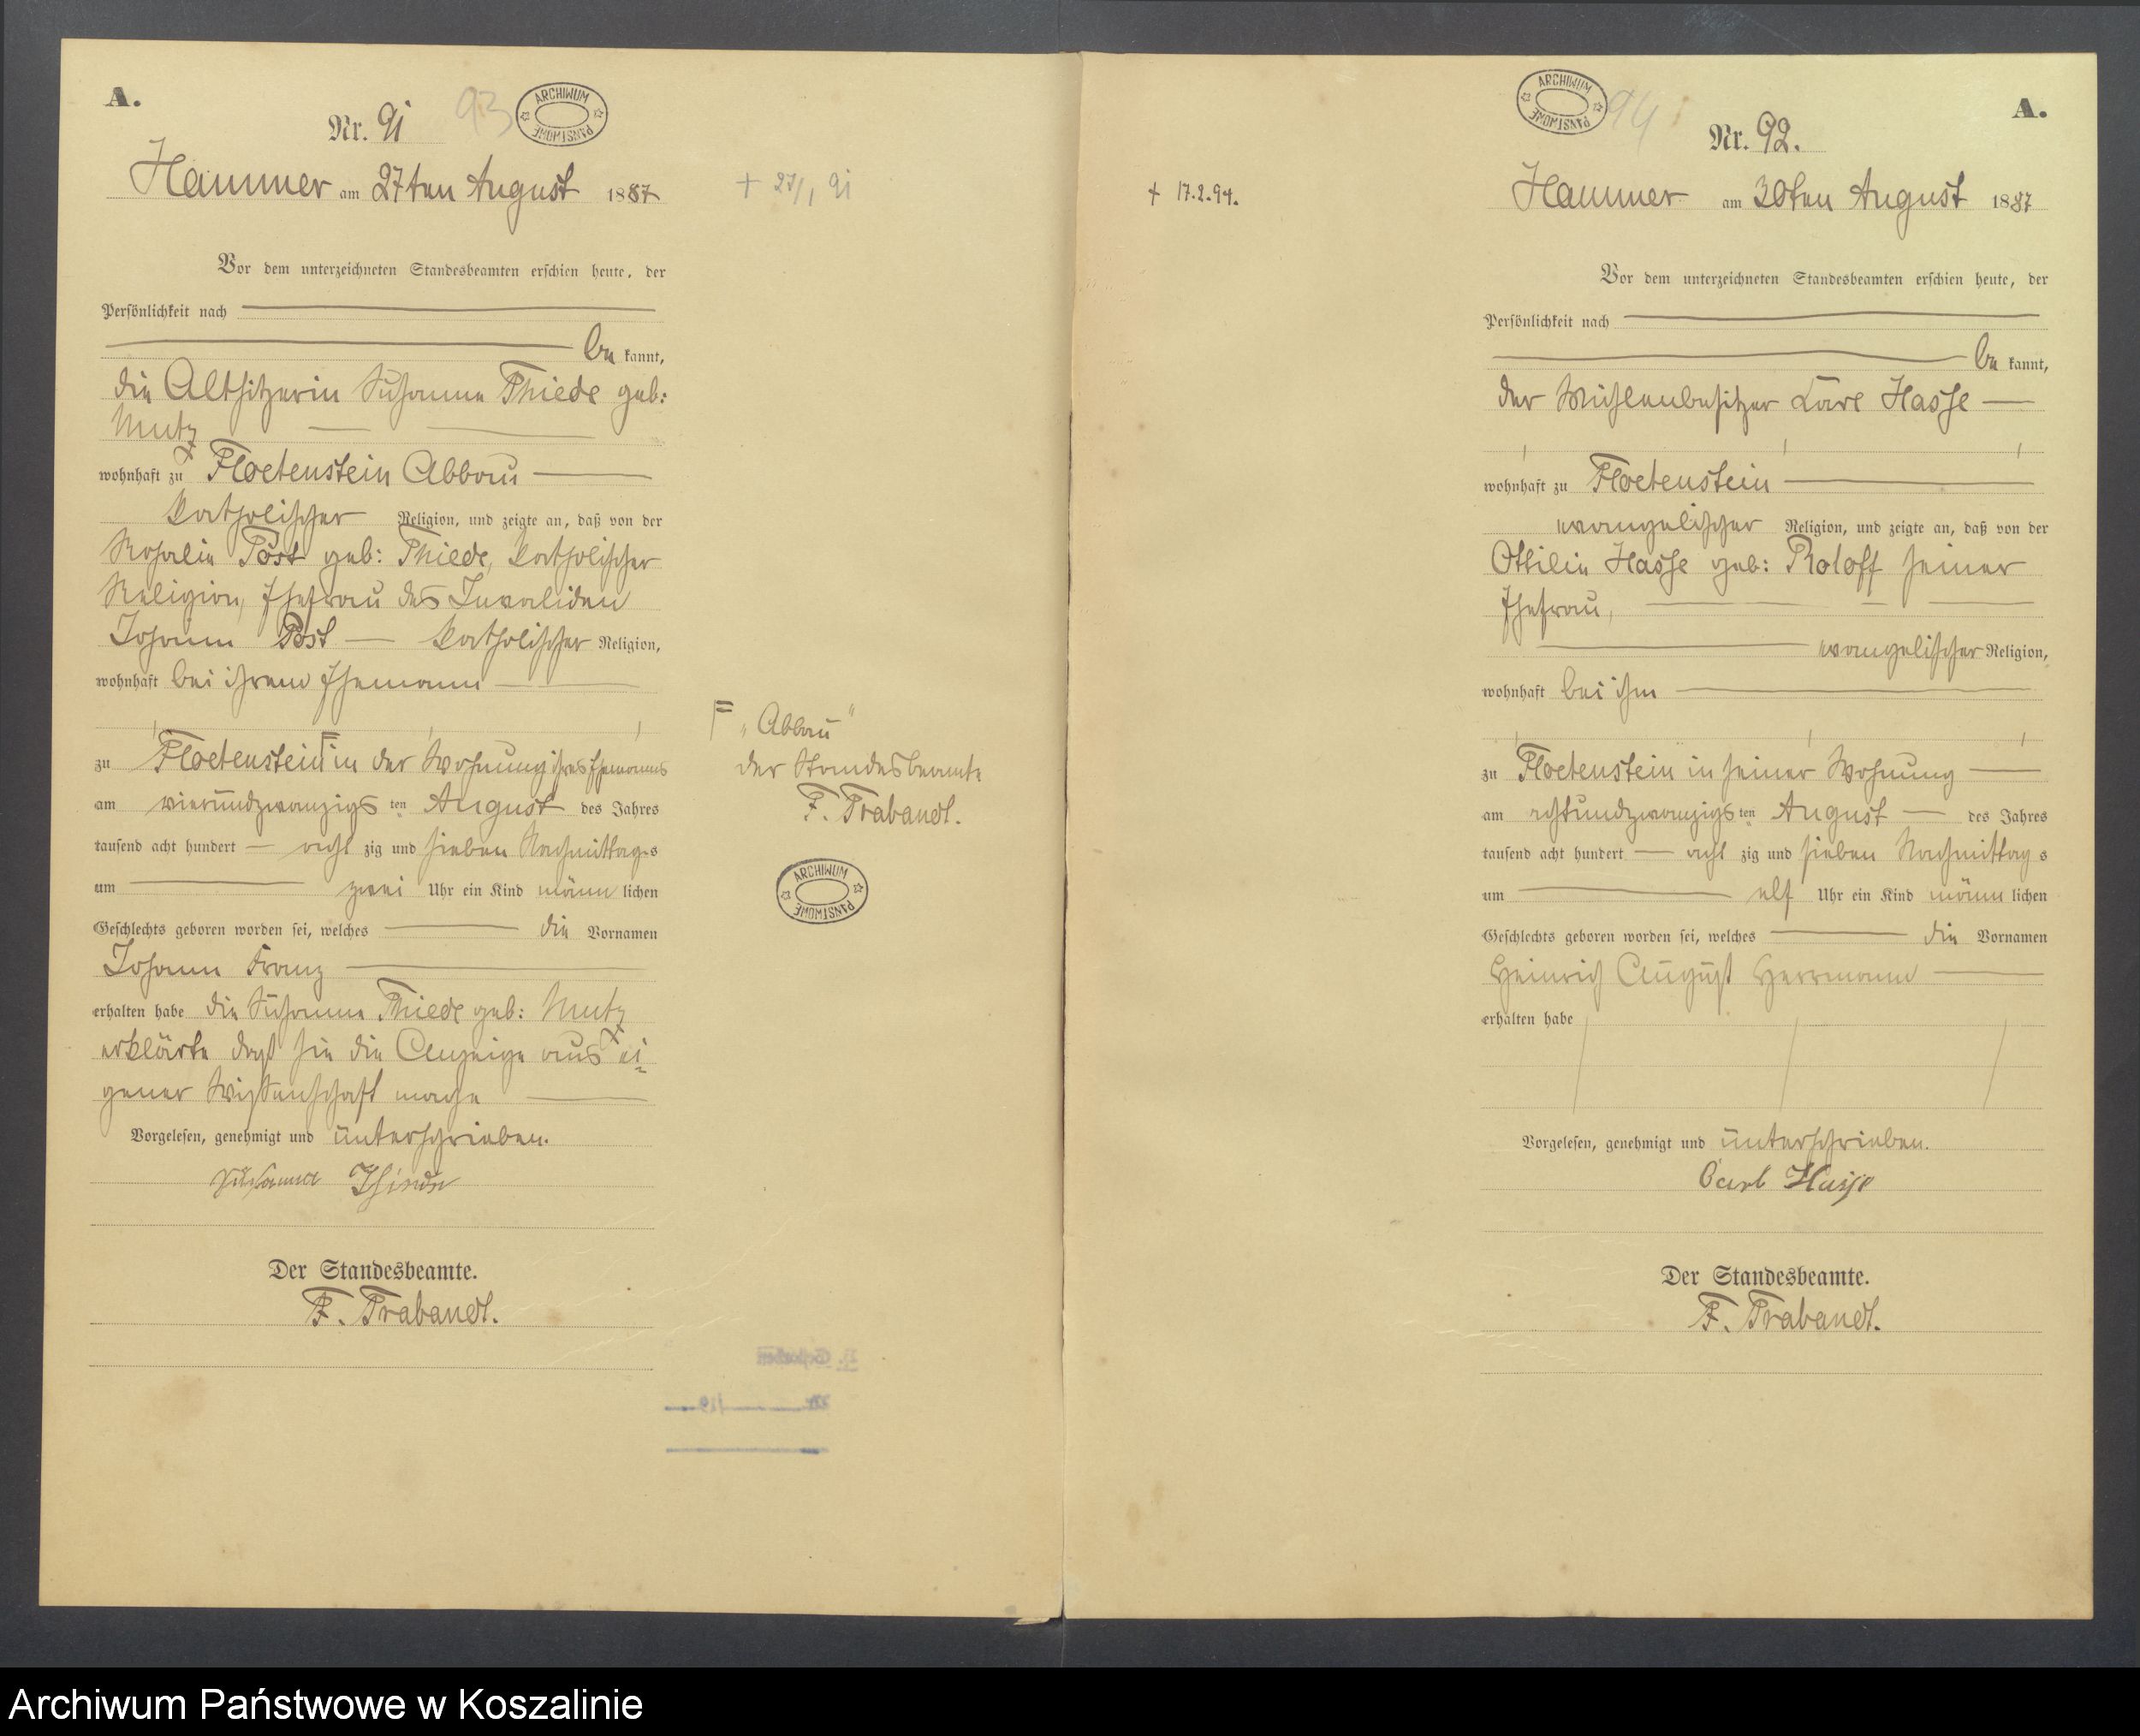 A.
93
ARCHIWUM PAŃSTWOWE
Nr. 91
Hammer am 27ten August 1887
+ 27/1 91
Vor dem unterzeichneten Standesbeamten erschien heute, der
Persönlichkeit nach
be kannt,
die Altsitzerin Susanna Thiede geb:
Mutz
wohnhaft zu Floetenstein Abbau
katholischer Religion, und zeigte an, daß von der
Rosalie Post geb: Thiede, katholischer
Religion, Ehefrau des Invaliden
Johann Post — katholischer Religion,
wohnhaft bei ihrem Ehemann
zu Floetenstein F in der Wohnung ihres Ehemanns
am vierundzwanzigs ten August des Jahres
tausend acht hundert — acht zig und sieben Nachmittags
um zwei Uhr ein Kind männ lichen
Geschlechts geboren worden sei, welches die Vornamen
Johann Franz
erhalten habe die Susanna Thiede geb: Mutz
erklärte daß sie die Anzeige aus ei-
gener Wissenschaft mache
Vorgelesen, genehmigt und unterschrieben.
Susanna Thiede
Der Standesbeamte.
F. Trabandt.
F „Abbau"
der Standesbeamte
F. Trabandt.
ARCHIWUM PAŃSTWOWE
+ 17.2.94.
ARCHIWUM PAŃSTWOWE
94
A.
Nr. 92.
Hammer am 30ten August 1887
Vor dem unterzeichneten Standesbeamten erschien heute, der
Persönlichkeit nach
be kannt,
der Mühlenbesitzer Carl Hasse —
wohnhaft zu Floetenstein
evangelischer Religion, und zeigte an, daß von der
Ottilie Hasse geb: Roloff seiner
Ehefrau,
evangelischer Religion,
wohnhaft bei ihm
zu Floetenstein in seiner Wohnung —
am achtundzwanzigs ten August — des Jahres
tausend acht hundert — acht zig und sieben Nachmittag s
um elf Uhr ein Kind männ lichen
Geschlechts geboren worden sei, welches die Vornamen
Heinrich August Herrmann
erhalten habe
Vorgelesen, genehmigt und unterschrieben.
Carl Hasse
Der Standesbeamte.
F. Trabandt.
Archiwum Państwowe w Koszalinie